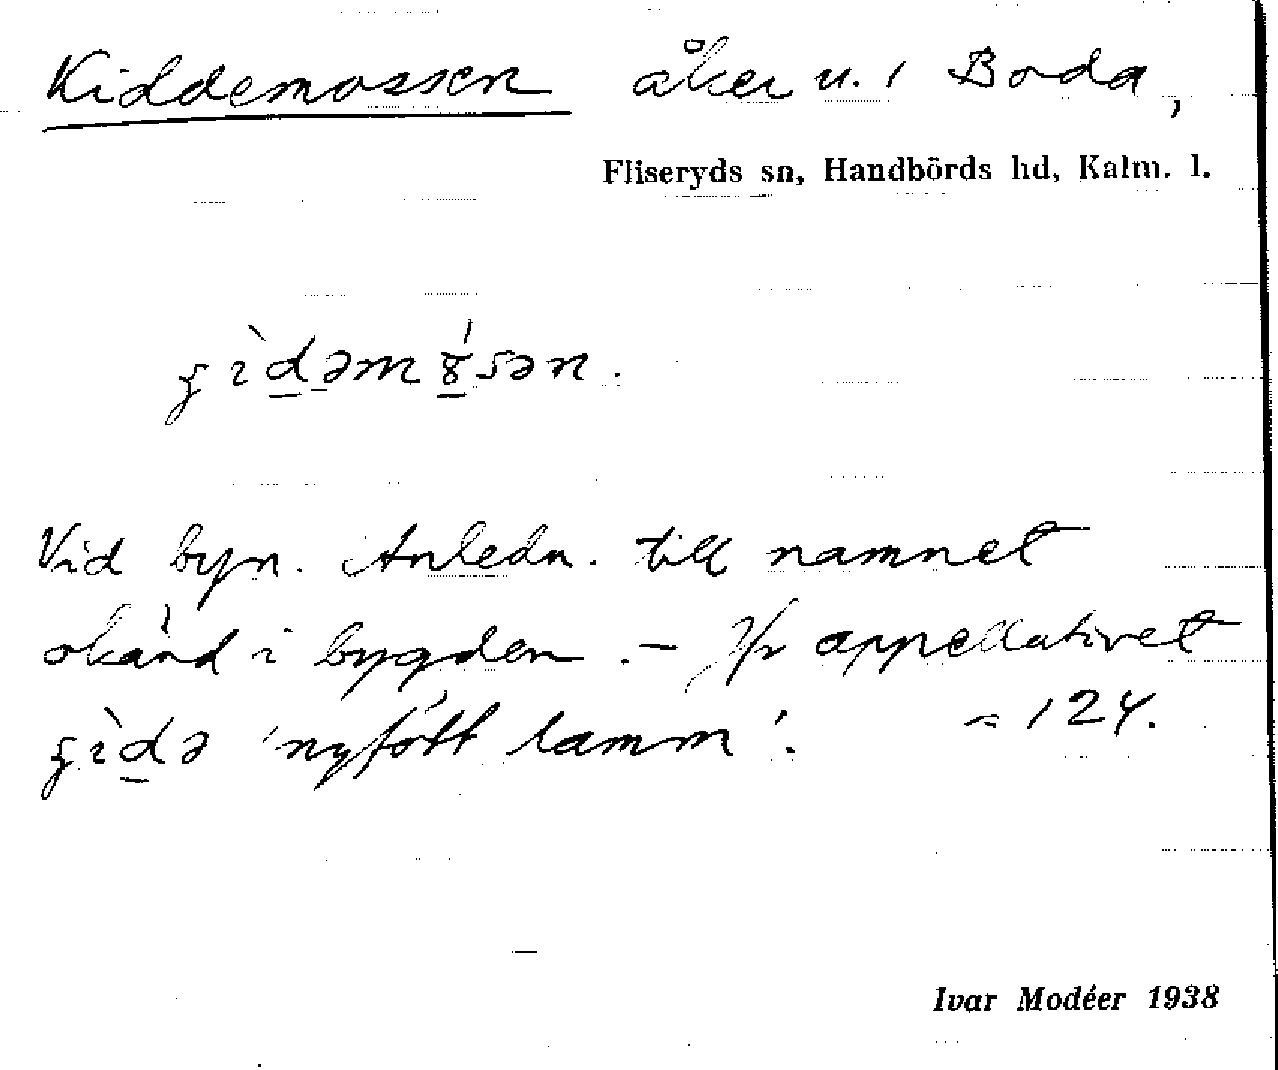 Kiddemossen åker u. 1 Boda,
Fliseryds sn, Handbörds hd, Kalm. l.
Vid byn. Anledn. till namnet
okänd i bygden. - Jfr appellativet
'nyfött lamm'. = 124.
Ivar Modéer 1938